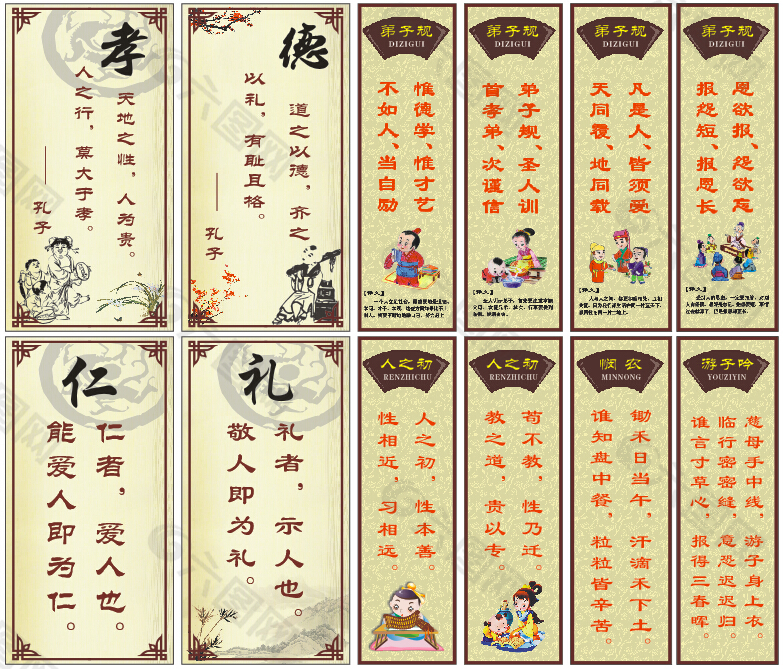 孝
天地之性，人为贵。
人之行，莫大于孝。
——孔子
德
道之以德，齐之
以礼，有耻且格。
——孔子
弟子规
DIZIGUI
惟德学、惟才艺
不如人、当自励
【释义】
弟子规
DIZIGUI
弟子规、圣人训
首孝弟、次谨信
【释义】
弟子规
DIZIGUI
凡是人、皆须爱
天同覆、地同载
【释义】
弟子规
DIZIGUI
恩欲报、怨欲忘
报怨短、报恩长
【释义】
仁
仁者，爱人也。
能爱人即为仁。
礼
礼者，示人也。
敬人即为礼。
人之初
RENZHICHU
人之初，性本善。
性相近，习相远。
人之初
RENZHICHU
苟不教，性乃迁。
教之道，贵以专。
悯农
MINNONG
锄禾日当午，汗滴禾下土。
谁知盘中餐，粒粒皆辛苦。
游子吟
YOUZIYIN
慈母手中线，游子身上衣。
临行密密缝，意恐迟迟归。
谁言寸草心，报得三春晖。
六图网